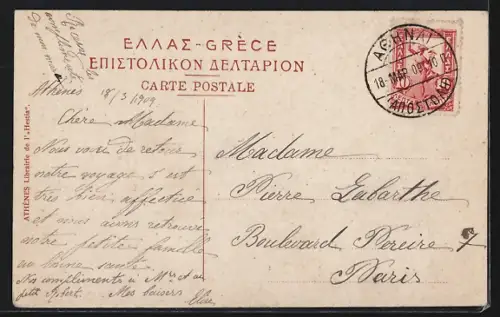 ΕΛΛΑΣ-GRÈCE
ΕΠΙΣΤΟΛΙΚΟΝ ΔΕΛΤΑΡΙΟΝ
CARTE POSTALE
ΑΘΗΝΑΙ
18-ΜΑΡ 09
ΑΠΟΣΤΟΛΗ
ATHÈNES Librairie de l'"Hestia".
Athènes 18/3/1909
Chère Madame
Nous voici de retour
notre voyage s'est
très bien affectué
et nous avons retrouvé
notre petite famille
en bonne santé
Nos compliments à Mr et au
petit Robert. Mes baisers
Madame
Pierre Labarthe
Boulevard Pereire 7
Paris